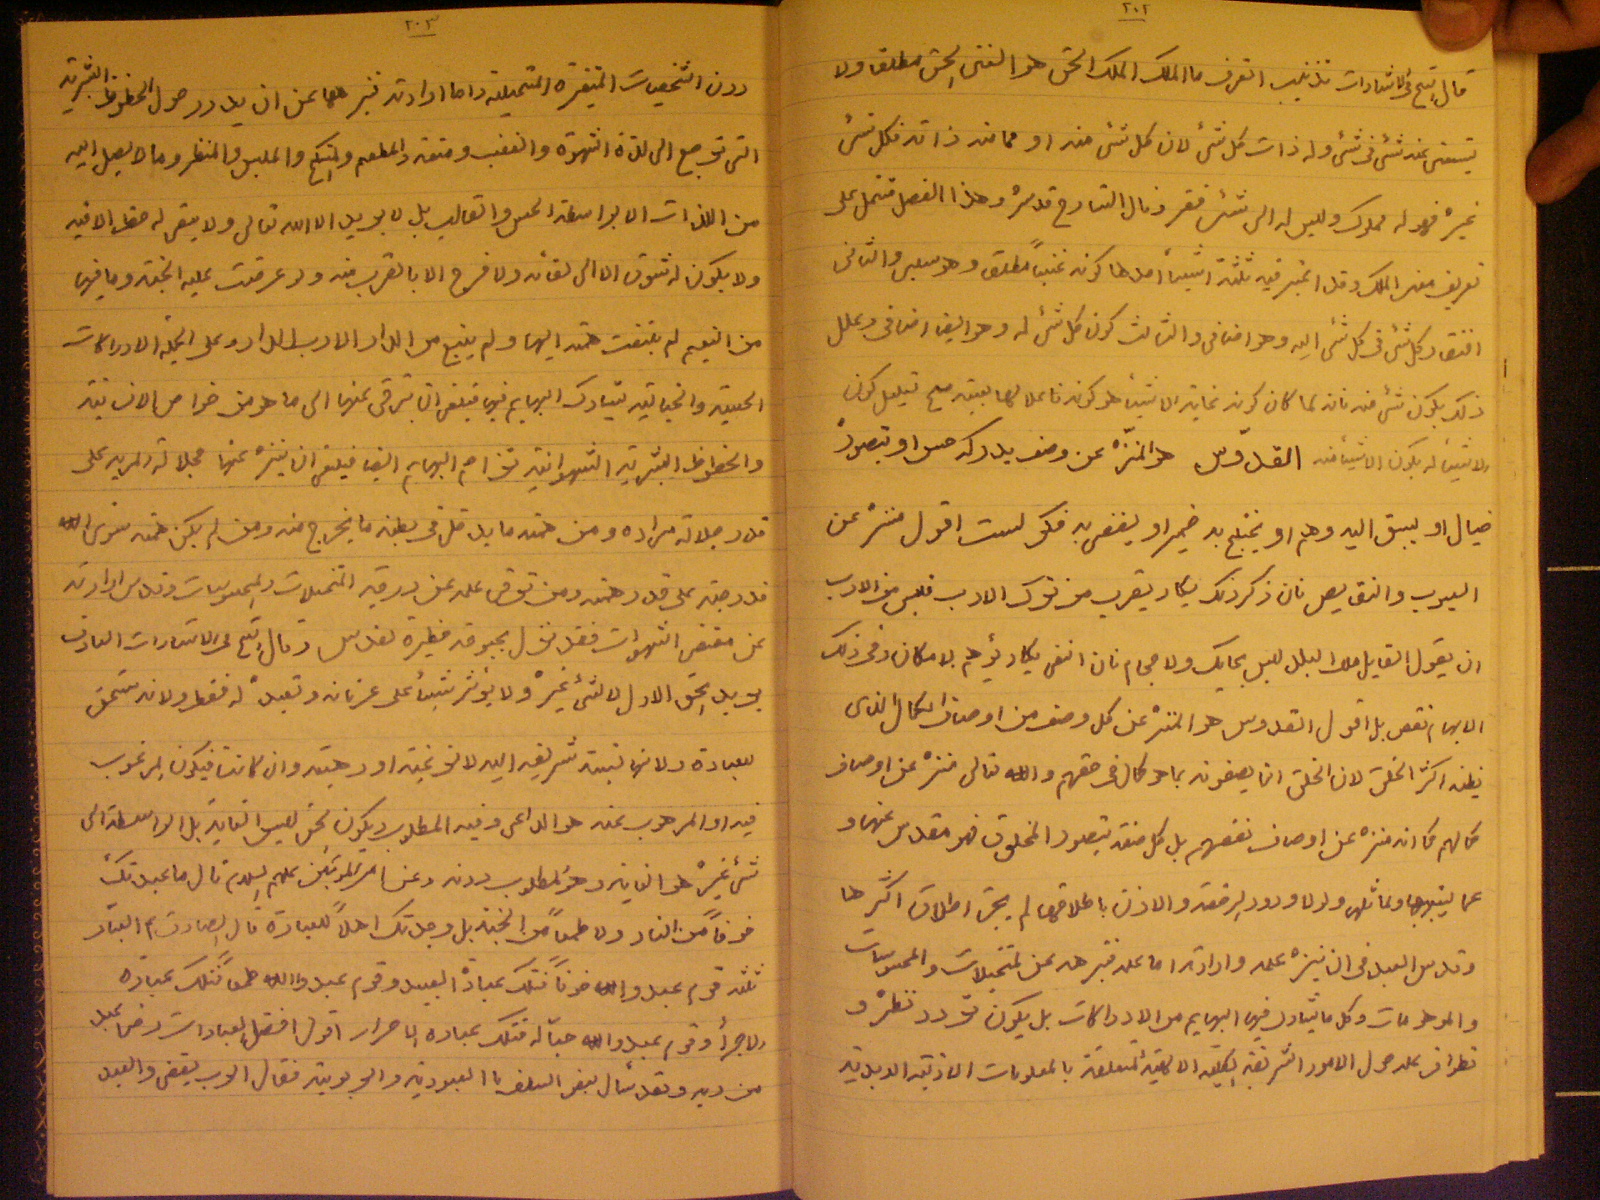 ٢٠٢
قال الشيخ في الاشارات تذنيب اتعرف ما الملك الملك الحق هو الغنى الحق مطلقا ولا
يستغنى عنه شئ في شئ وله ذات كل شئ لان كل شئ منه او مما منه ذاته فكل شئ
غيره فهو له مملوك وليس له الى شئ فقر وقال الشارح قدسره وهذا الفصل مشتمل على
تعريف معنى الملك وقد اعتبر فيه ثلثة اشياء احدها كونه غنياً مطلقا وهو سلبي والثانى
افتقار كل شئ في كل شئ اليه وهو اضافى والثالث كون كل شئ له وهو ايضا اضافى وعلل
ذلك بكون كل شئ منه فانه لما كان كونه غاية الاشياء هو كونه فاعلا لها بعينه صح تعليل كون
الاشياء له بكون الاشياء منه القدّوس هو المنزّه عن وصف يدركه حس او يتصوره
خيال او يسبق اليه وهم او يختلج به ضمير او يفضى به فكر لست اقول منزه عن
العيوب والنقايص فان ذكر ذلك يكاد يقرب من ترك الادب فليس من الادب
ان يقول القايل ملك البلد ليس بحايك ولا حجام فان النفى يكاد يوهم بلامكان وفى ذلك
الايهام نقص بل اقول القدوس هو المنزه عن كل وصف من اوصاف الكمال الذى
يظنه اكثر الخلق لان الخلق انما يصفونه بما هو كمال في حقهم والله تعالى منزه عن اوصاف
كمالهم كما انه منزه عن اوصاف نقصهم بل كل صفة يتصور المخلوق فهو مقدس عنها و
عما يشبهها ويماثلها ولولا ورود الرخصة والاذن باطلاقها لم يجز اطلاق اكثرها
وقدس العبد في ان ينزه علمه وارادته اما علمه فينزهه عن المتخيلات والمحسوسات
والموهومات وكل ما يشارك فيها البهايم من الادراكات بل يكون تردد نظره و
تطواف علمه حول الامور الشريفة الكلية الالهية المتعلقة بالمعلومات الازلية الابدية
٢٠٣
دون الشخصيات المتغيرة المتخيلة واما ارادته فينزهها عن ان يدور حول الحظوظ البشرية
التى ترجع الى لذة الشهوة والغضب ومتعة المطعم والمنكح والملبس والمنظر وما لا يصل اليه
من اللذات الا بواسطة الحس والقالب بل لا يريد الا الله تعالى ولا يبقى له حظ الا فيه
ولا يكون له شوق الا الى لقائه ولا فرح الا بالقرب منه ولو عرضت عليه الجنة وما فيها
من النعيم لم يلتفت همته اليها ولم يقنع من الدار الا برب الدار وعلى الجملة الادراكات
الحسية والخيالية يشارك البهايم فيها فينبغى ان يترقى عنها الى ما هو من خواص الانسانية
والحظوظ البشرية الشهوانية تزاحم البهايم ايضا فينبغى ان ينزه عنها فجلالة المريد على
قدر جلالة مراده ومن همته ما يدخل في بطنه فما يخرج منه ومن لم يكن همته سوى الله
فدرجته على قدر همته ومن ترقى علمه عن درجة المتخيلات والمحسوسات وقدس ارادته
عن مقتضى الشهوات فقد نزل بحبوحة حظيرة القدس وقال الشيخ في الاشارات العارف
يريد الحق الاول لا لشئ غيره ولا يؤثر شيئا على عرفانه وتعبده له فقط ولانه مستحق
للعبادة ولانها نسبة شريفة اليه لا لرغبة او رهبة وان كانتا فيكون المرغوب
فيه او المرهوب عنه هو الداعى وفيه المطلوب ويكون الحق ليس الغاية بل الواسطة الى
شئ غيره هو الغاية وهو المطلوب دونه وعن امير المؤمنين عليه السلام قال ما عبدتك
خوفاً من النار ولا طمعاً من الجنة بل وجدتك اهلاً للعبادة قال الصادق م العبّاد
ثلثة قوم عبدوا الله خوفاً فتلك عبادة العبيد وقوم عبدوا الله طمعا فتلك عبادة
الاجراء وقوم عبدوا الله حبّا له فتلك عبادة الاحرار اقول افضل العبادات
من ربه وقد سأل بعض السلف ما العبودية والربوبية فقال الرب يقضى والعبد